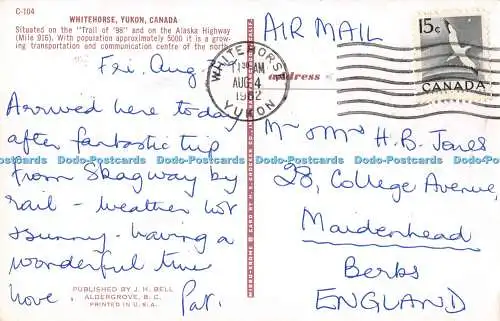 C-104
WHITEHORSE, YUKON, CANADA
Situated on the "Trail of '98" and on the Alaska Highway
(Mile 916). With population approximately 5000 it is a grow-
ing transportation and communication centre of the north.
Fri. Aug
Arrived here today
after fantastic trip
from Skagway by
rail - weather hot
& sunny - having a
wonderful time
Love. Pat.
PUBLISHED BY J. H. BELL
ALDERGROVE, B. C.
PRINTED IN U.S.A.
WHITEHORSE
AM
AUG 4
1962
YUKON
AIR MAIL
15c
CANADA
address
Mr & Mrs H. B. Jones
28, College Avenue,
Maidenhead
Berks
ENGLAND
Dodo-Postcards Dodo-Postcards Dodo-Postcards Dodo-Postcards Dodo-Postcards Dodo-Postcards